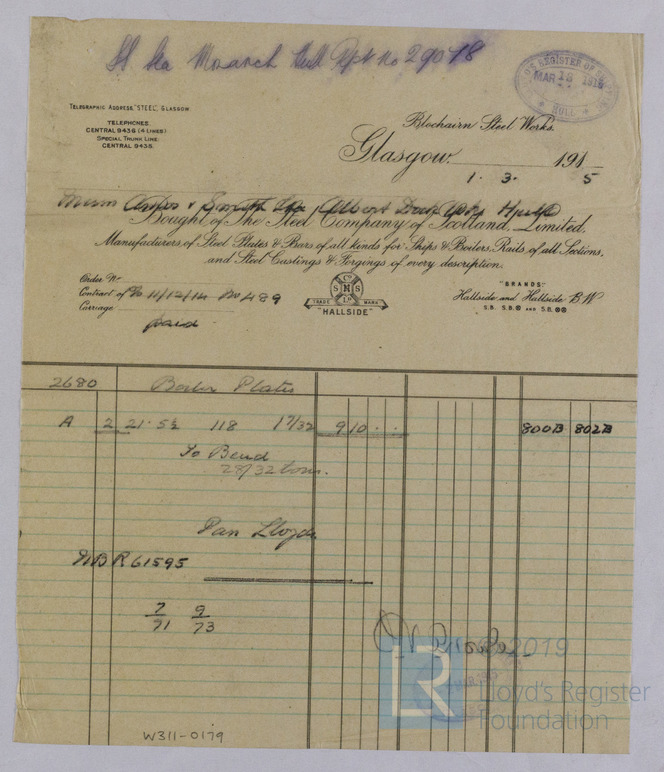 Monarch Hull Rpt no 29078
LLOYD'S REGISTER OF
MAR 18 1915
HULL
TELEGRAPHIC ADDRESS "STEEL", GLASGOW.
TELEPHONES.
CENTRAL 9436 (4 LINES)
SPECIAL TRUNK LINE.
CENTRAL 9435.
Blochairn Steel Works.
Glasgow. 1. 3. 1915
Messrs & Smith Ltd, Albert Dock Hull
Bought of The Steel Company of Scotland, Limited.
Manufacturers, of Steel Plates & Bars of all kinds for Ships & Boilers, Rails of all Sections,
and Steel Castings & Forgings of every description.
Order No
Contract of 11/12/14 No 489
Carriage paid
S Co N S LD
TRADE MARK
"HALLSIDE"
"BRANDS"
Hallside and Hallside B.W
S.B. S.B. AND S.B.
2680 Boiler Plates
A 2 21·5½ 118 17/32 910 · · 800B 802B
To Bend
28/32 tons.
Pan Lloyds
NBR 61595
7 9
71 73
2019
LR
Lloyd's Register
Foundation
W311-0179